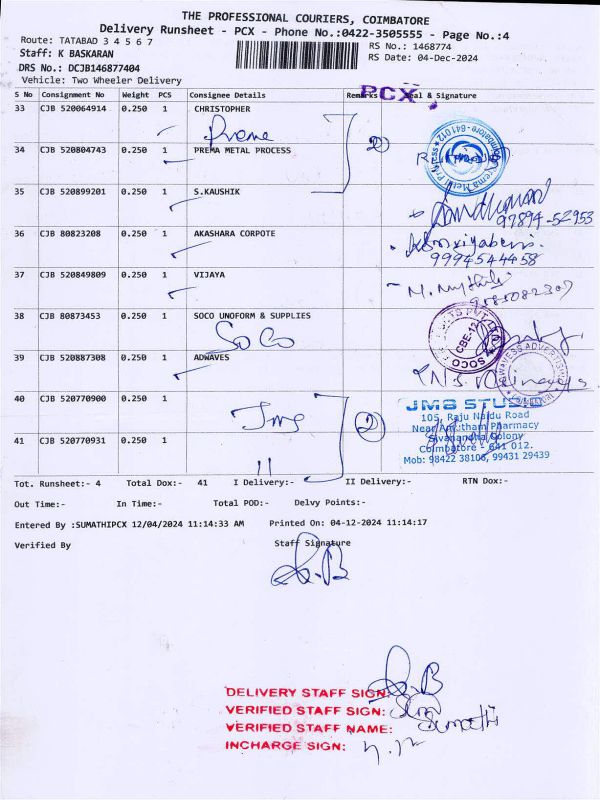 THE PROFESSIONAL COURIERS, COIMBATORE
Delivery Runsheet - PCX - Phone No.:0422-3505555 - Page No.:4
Route: TATABAD 3 4 5 6 7
RS No.: 1468774
Staff: K BASKARAN
RS Date: 04-Dec-2024
DRS No.: DCJB146877404
Vehicle: Two Wheeler Delivery
PCX
S No Consignment No Weight PCS Consignee Details Remarks Seal & Signature
33 CJB 520064914 0.250 1 CHRISTOPHER
Prema
34 CJB 520804743 0.250 1 PREMA METAL PROCESS
2
35 CJB 520899201 0.250 1 S.KAUSHIK
97894-52953
36 CJB 80823208 0.250 1 AKASHARA CORPOTE
9994544458
37 CJB 520849809 0.250 1 VIJAYA
38 CJB 80873453 0.250 1 SOCO UNOFORM & SUPPLIES
SoCo
CBE-12
39 CJB 520887308 0.250 1 ADWAVES
40 CJB 520770900 0.250 1
Jms
2
JMS STUDIO
105, Raju Naidu Road
Near Amutham Pharmacy
Sivanandha Colony
Coimbatore - 641 012.
Mob: 98422 38106, 99431 29439
41 CJB 520770931 0.250 1
Tot. Runsheet:- 4 Total Dox:- 41 I Delivery:- II Delivery:- RTN Dox:-
Out Time:- In Time:- Total POD:- Delvy Points:-
Entered By :SUMATHIPCX 12/04/2024 11:14:33 AM Printed On: 04-12-2024 11:14:17
Verified By Staff Signature
DELIVERY STAFF SIGN:
VERIFIED STAFF SIGN:
VERIFIED STAFF NAME: Sumathi
INCHARGE SIGN: